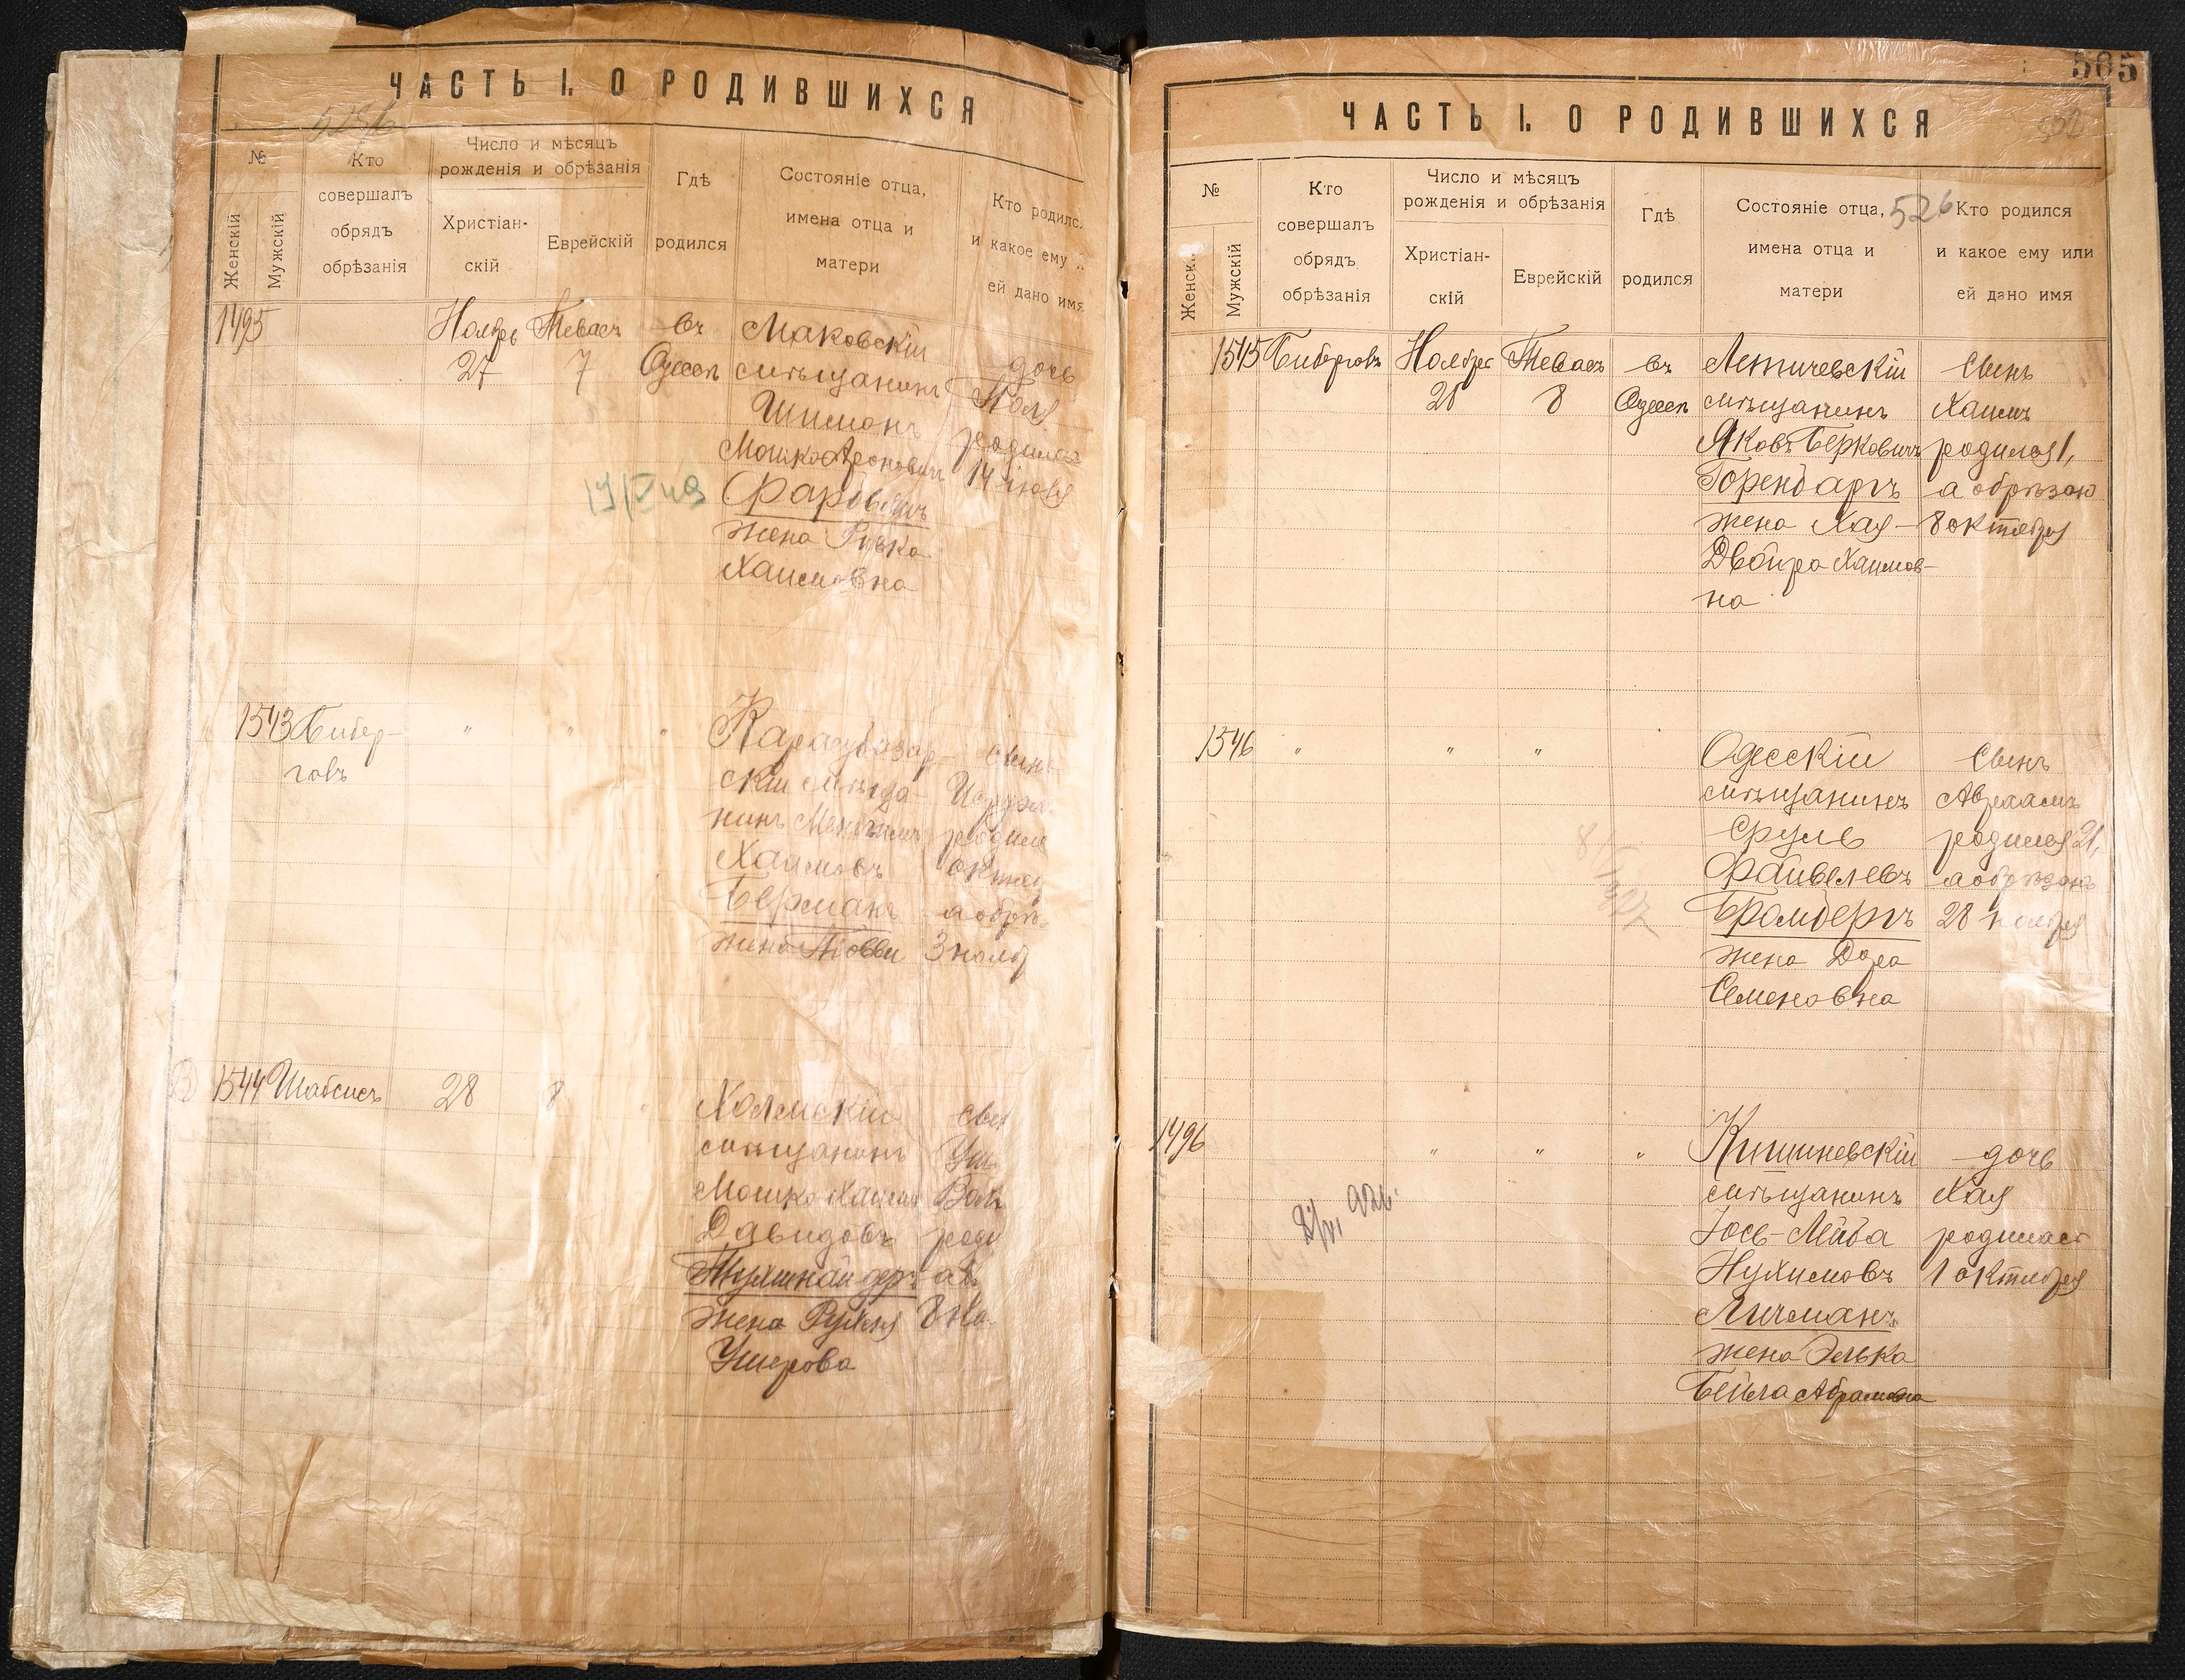 ЧАСТЬ I. О РОДИВШИХСЯ
№
Женскій
Мужскій
Кто
совершалъ
обрядъ
обрѣзанія
Число и мѣсяцъ
рожденія и обрѣзанія
Христіан-
скій
Еврейскій
Гдѣ
родился
Состояніе отца,
имена отца и
матери
Кто родилс
и какое ему
ей дано имя
1495
Ноябрь
27
Тевасъ
7
въ
Одессѣ
Маковскій
мѣщанинъ
Шимонъ
Мошко Ароновичъ
жена Ривка
Хаимовна
дочь
родилась
14 іюля
1543
Бибер-
говъ
"
"
"
Карасубазар-
скій мѣща-
нинъ
Хаимовъ
Берманъ
жена
сынъ
родил
октяб
а обрѣ-
3 нояб
1544
Шабсисъ
28
8
"
Холмскій
мѣщанинъ
Мошко Хаимъ
Давидовъ
жена Рухля
Ушерова
сын
Уш
роди
8 но
565
ЧАСТЬ I. О РОДИВШИХСЯ
№
Женскі
Мужскій
Кто
совершалъ
обрядъ
обрѣзанія
Число и мѣсяцъ
рожденія и обрѣзанія
Христіан-
скій
Еврейскій
Гдѣ
родился
Состояніе отца,
имена отца и
матери
526
Кто родился
и какое ему или
ей дано имя
1545
Биберговъ
Ноября
28
Тевасъ
8
въ
Одессѣ
Летичевскій
мѣщанинъ
Яковъ Берковичъ
Горендаръ
жена Хая-
Двойра Хаимов-
на
Сынъ
Хаимъ
родился 1,
а обрѣзан
8 октября
1546
"
"
"
Одесскій
мѣщанинъ
Сруль
Файвелевъ
Бромбергъ
жена Дора
Семеновна
Сынъ
Авраамъ
родился 21,
а обрѣзанъ
28 ноября
1496
"
"
"
Кишиневскій
мѣщанинъ
Іось-Лейба
Нухимовъ
Личманъ
жена Элька
Бейла Абрамовна
дочь
Хая
родилась
1 октября